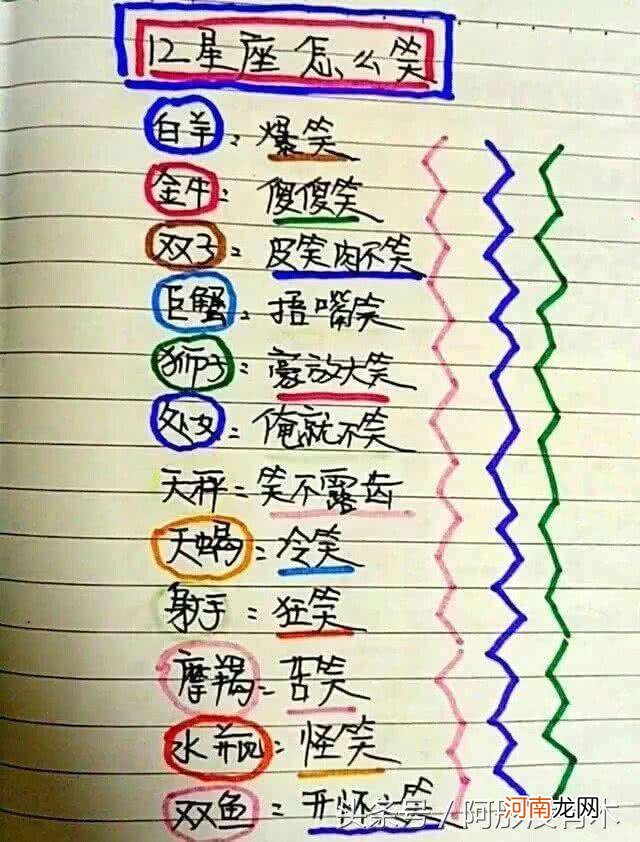 12星座怎么笑
白羊：爆笑
金牛：傻傻笑
双子：皮笑肉不笑
巨蟹：捂嘴笑
狮子：豪放大笑
处女：俺就不笑
天秤：笑不露齿
天蝎：冷笑
射手：狂笑
摩羯：苦笑
水瓶：怪笑
双鱼：开怀大笑
头条号 / 阿彤没有木
河南龙网